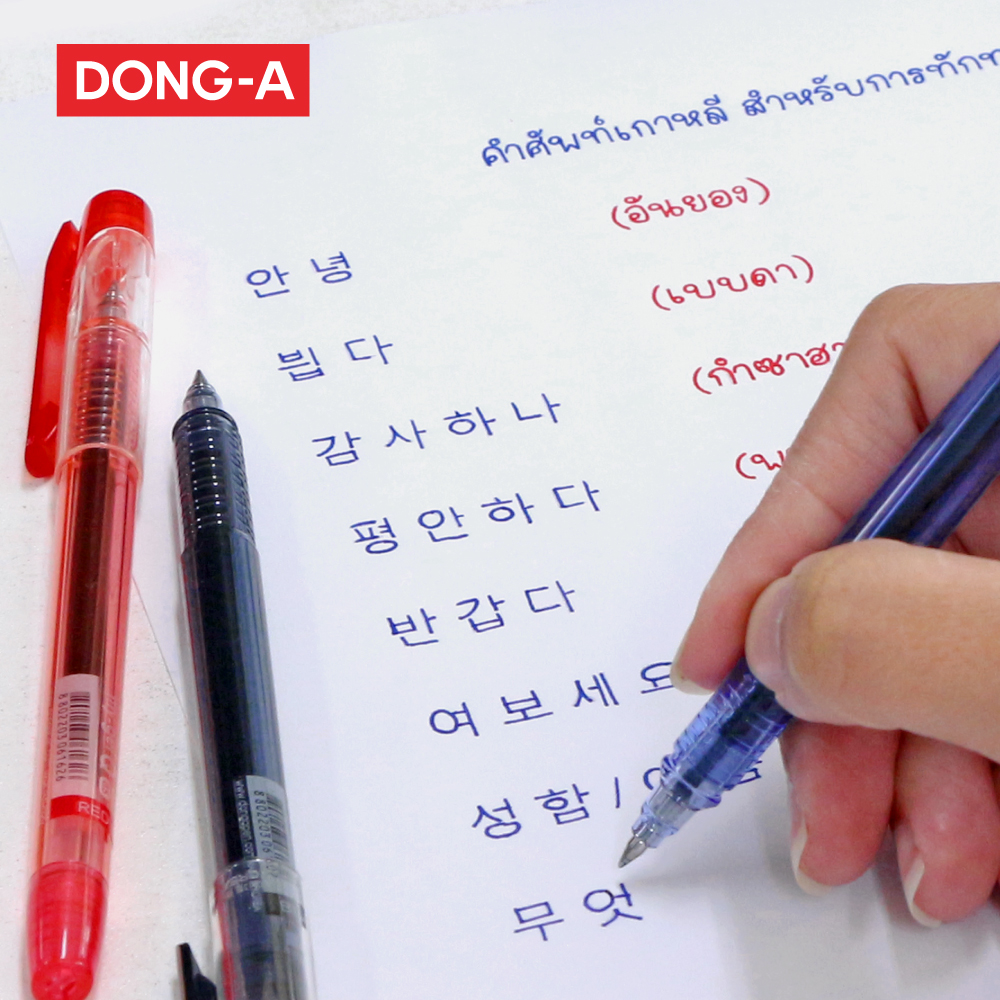 DONG-A
คำศัพท์เกาหลี สำหรับการทักท
안녕 (อันยอง)
뵙다 (เบบดา)
감사하나 (กำซาฮา
평안하다 (พ
반갑다
여보세요
성함 /
무엇
8802203061626
RED